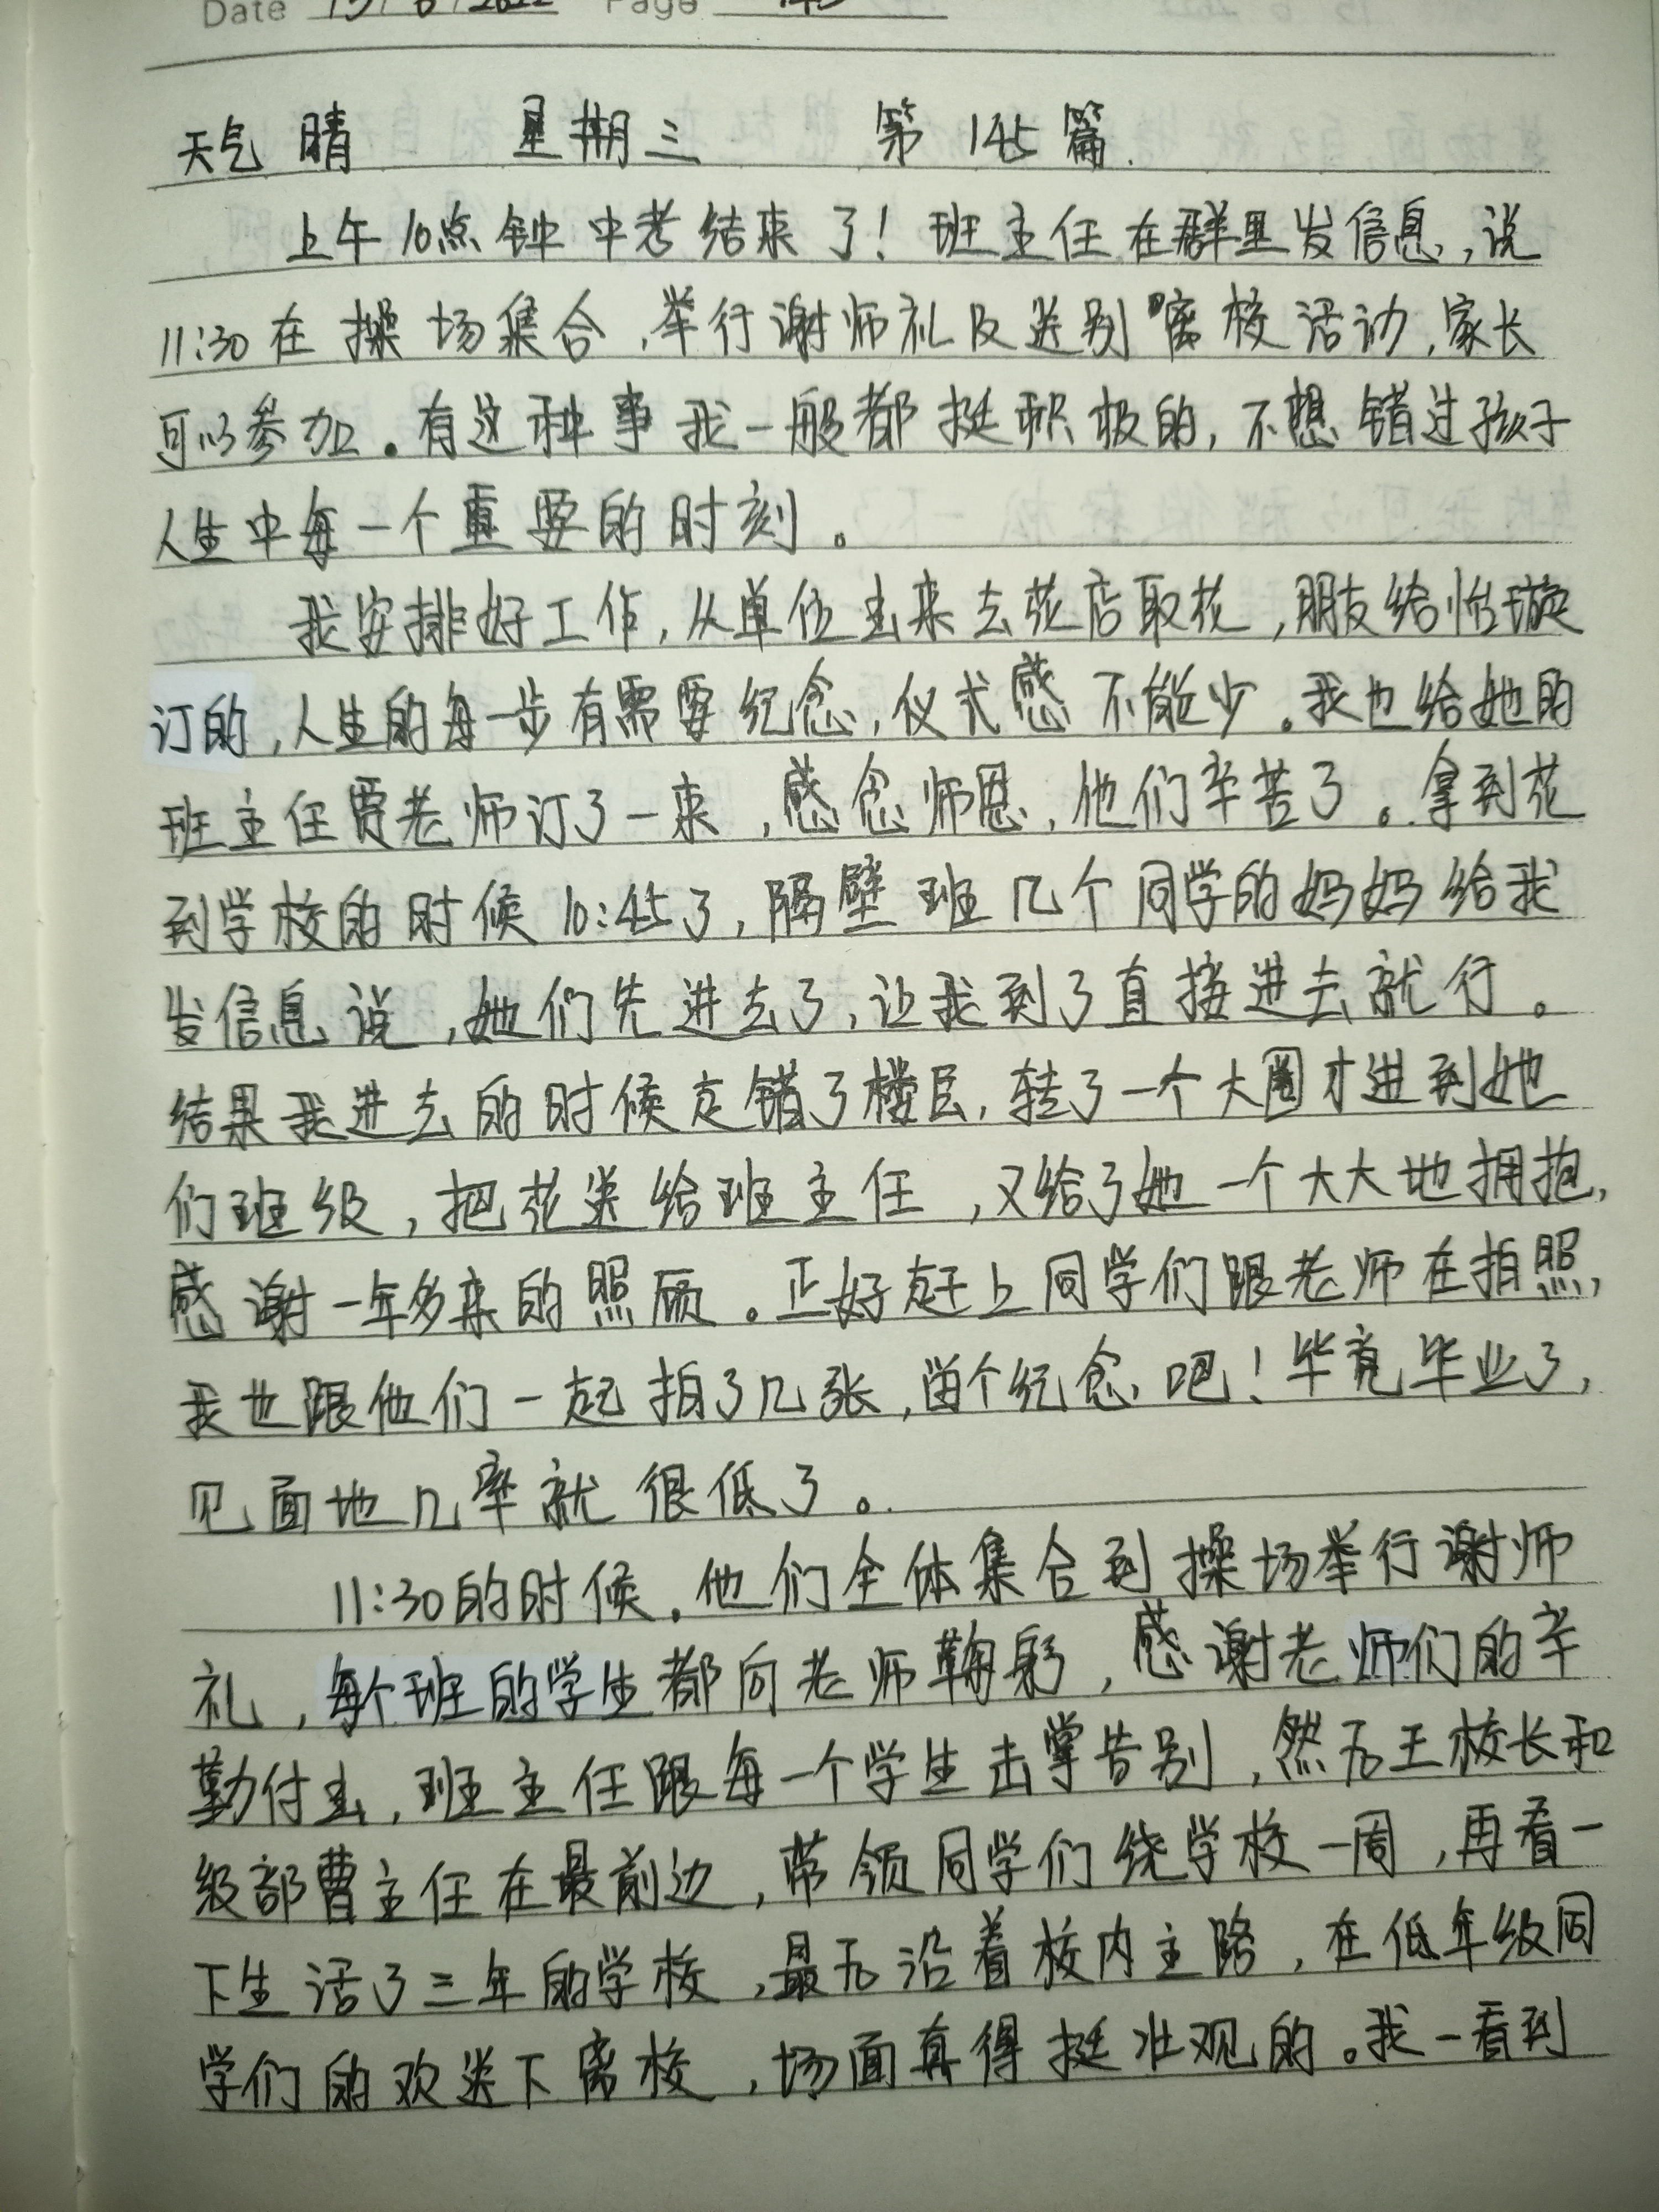 Date 15/6/2022 Page
天气 晴 星期三 第 145 篇.
上午10点钟中考结束了！班主任在群里发信息，说
11:30在操场集合，举行谢师礼及送别离校活动，家长
可以参加。有这种事我一般都挺积极的，不想错过孩子
人生中每一个重要的时刻。
我安排好工作，从单位出来去花店取花，朋友给怡璇
订的，人生的每一步有需要纪念，仪式感不能少。我也给她的
班主任贾老师订了一束，感念师恩，他们辛苦了。拿到花
到学校的时候10:45了，隔壁班几个同学的妈妈给我
发信息说，她们先进去了，让我到了直接进去就行。
结果我进去的时候走错了楼层，转了一个大圈才进到她
们班级，把花送给班主任，又给了她一个大大地拥抱，
感谢一年多来的照顾。正好赶上同学们跟老师在拍照，
我也跟他们一起拍了几张，留个纪念吧！毕竟毕业了，
见面地几率就很低了。
11:30的时候，他们全体集合到操场举行谢师
礼，每个班的学生都向老师鞠躬，感谢老师们的辛
勤付出，班主任跟每一个学生击掌告别，然后王校长和
级部曹主任在最前边，带领同学们绕学校一周，再看一
下生活了三年的学校，最后沿着校内主路，在低年级同
学们的欢送下离校，场面真得挺壮观的。我一看到